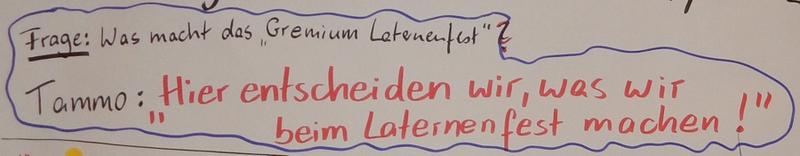 Frage: Was macht das „Gremium Latenenfest"?
Tammo: „Hier entscheiden wir, was wir
beim Laternenfest machen!"